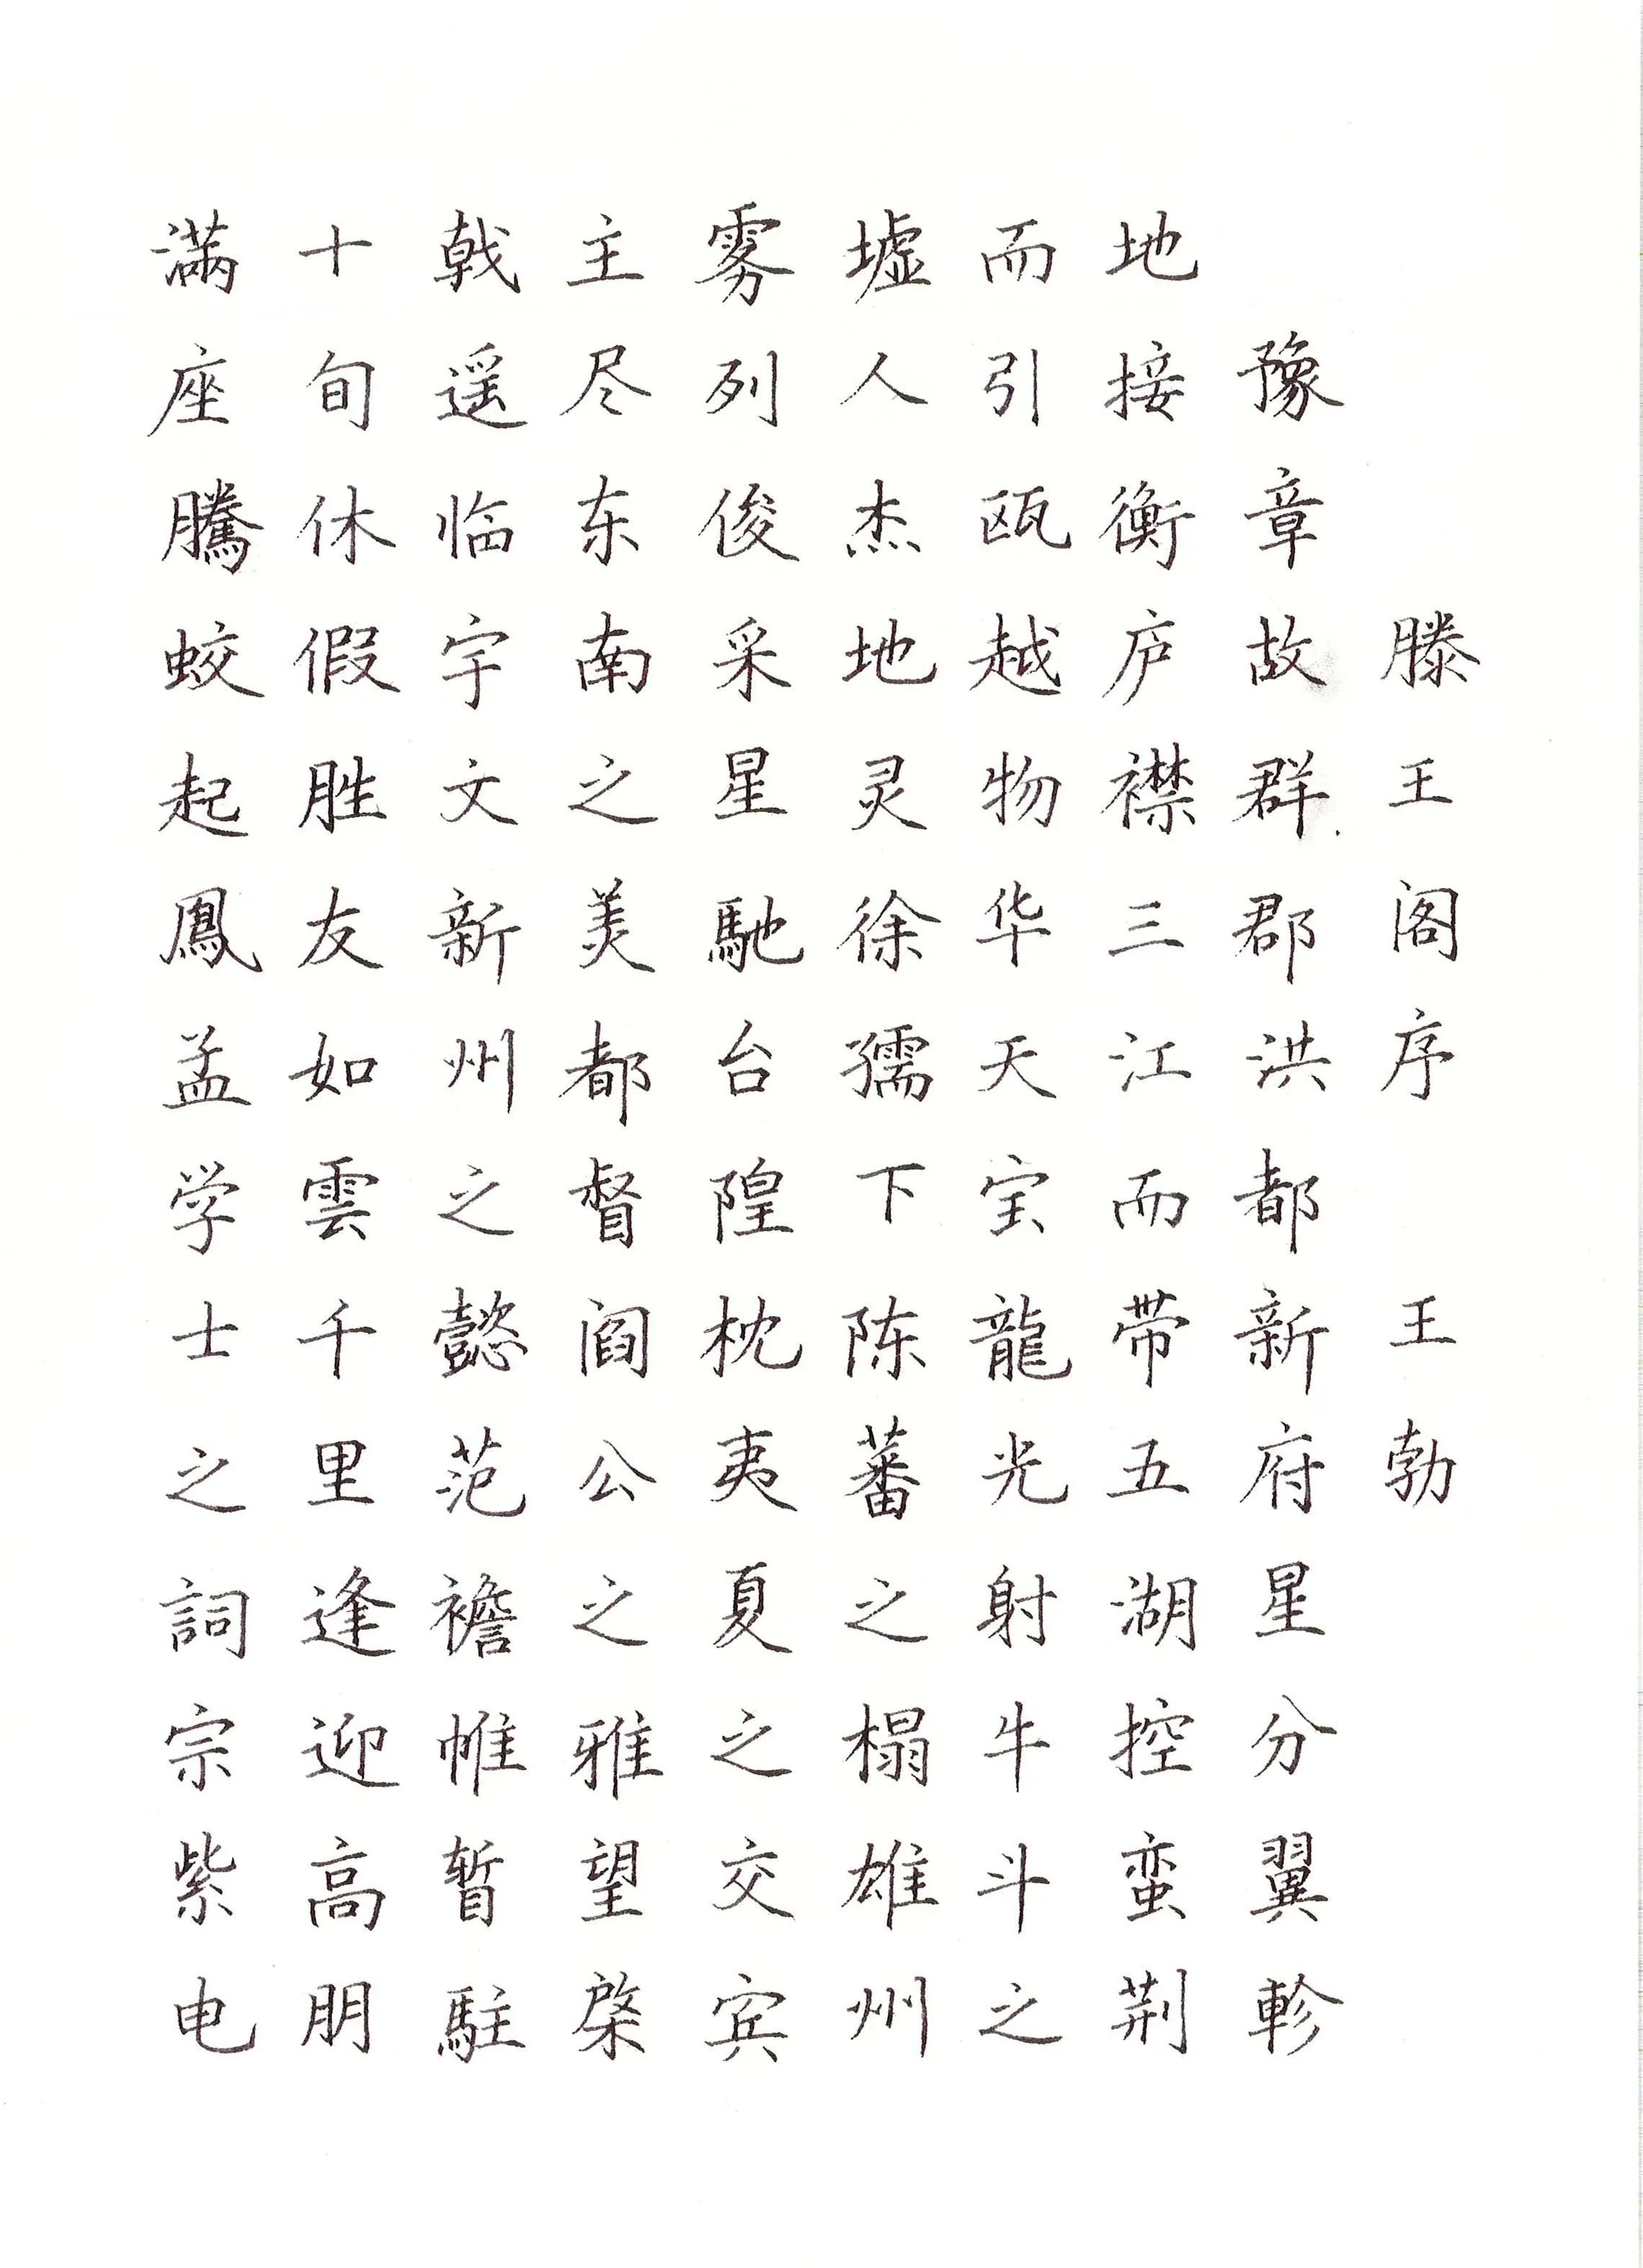 滕王阁序 王勃
豫章故群郡洪都新府星分翼軫
地接衡庐襟三江而带五湖控蛮荆
而引瓯越物华天宝龍光射牛斗之
墟人杰地灵徐孺下陈蕃之榻雄州
雾列俊采星馳台隍枕夷夏之交宾
主尽东南之美都督阎公之雅望棨
戟遥临宇文新州之懿范襜帷暂駐
十旬休假胜友如雲千里逢迎高朋
滿座騰蛟起鳳孟学士之詞宗紫电